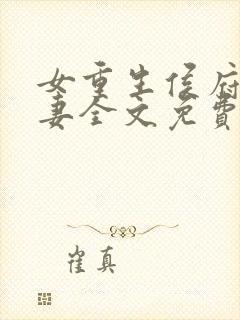 女重生侯府
妻全文免费
崔真